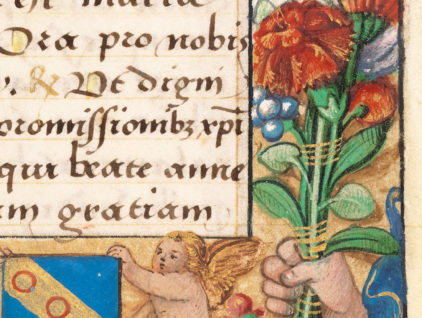 Ora pro nobis
V. Ut digni
promissionibz xpi
qui beate anne
am gratiam